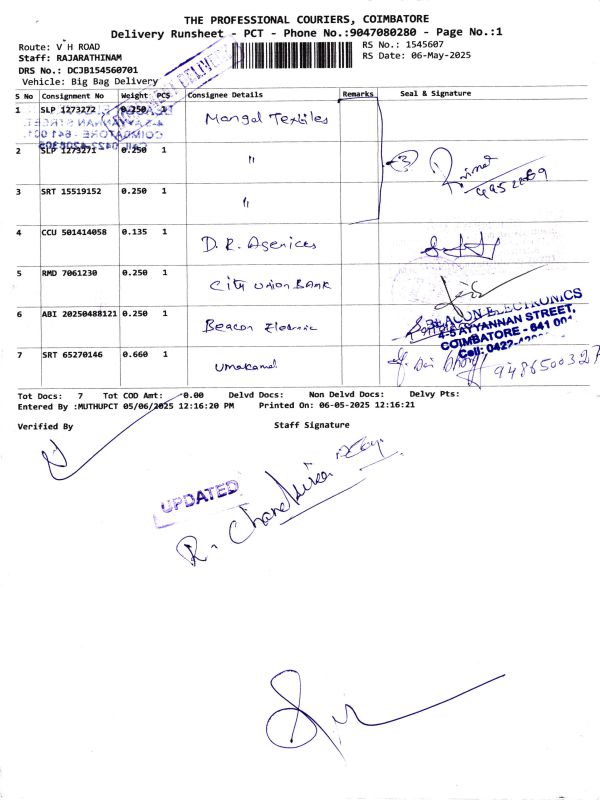 THE PROFESSIONAL COURIERS, COIMBATORE
Delivery Runsheet - PCT - Phone No.:9047080280 - Page No.:1
Route: V H ROAD
RS No.: 1545607
Staff: RAJARATHINAM
RS Date: 06-May-2025
DRS No.: DCJB154560701
Vehicle: Big Bag Delivery
S No Consignment No Weight PCS Consignee Details Remarks Seal & Signature
1 SLP 1273272 0.250 1 Mangal Textiles
2 SLP 1273271 0.250 1 "
3 SRT 15519152 0.250 1 "
4 CCU 501414058 0.135 1 D.R. Agenices
5 RMD 7061230 0.250 1 City Union Bank
6 ABI 20250488121 0.250 1 Beacon Elotronic
BEACON ELECTRONICS
4-5 AYYANNAN STREET,
COIMBATORE - 641 001
Cell: 0422-
7 SRT 65270146 0.660 1 Umakamal 9486500327
Tot Docs: 7 Tot COD Amt: 0.00 Delvd Docs: Non Delvd Docs: Delvy Pts:
Entered By :MUTHUPCT 05/06/2025 12:16:20 PM Printed On: 06-05-2025 12:16:21
Verified By Staff Signature
UPDATED